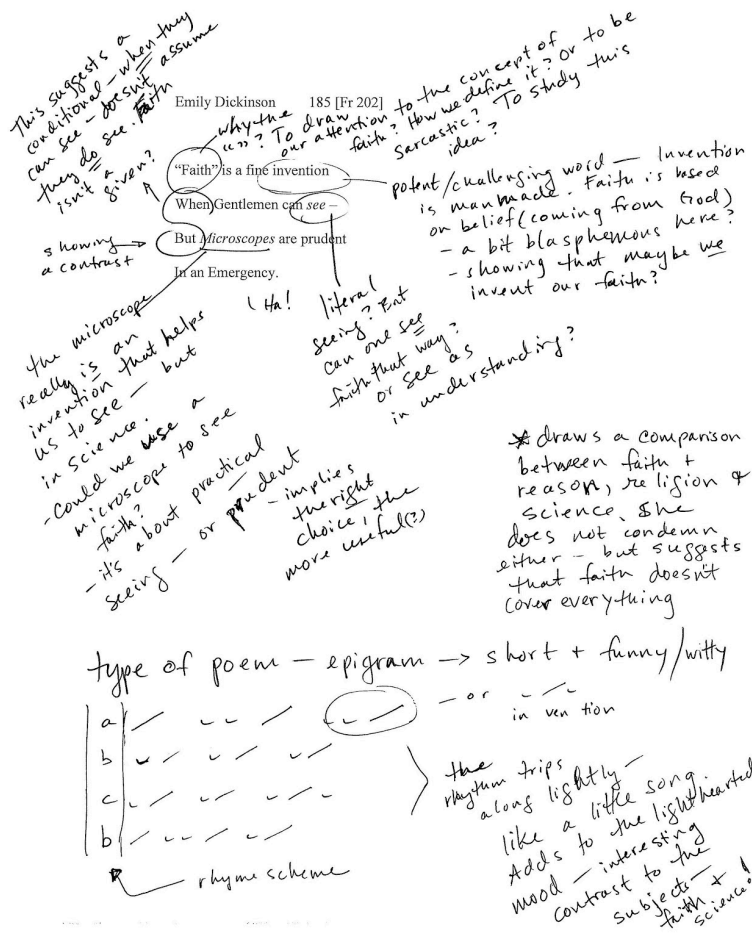 This suggests a
conditional – when they
can see – doesn't assume
they do see. Faith
isn't a
given?
Emily Dickinson 185 [Fr 202]
why the
" "? To draw
our attention to the concept of
faith? How we define it? Or to be
sarcastic? To study this
idea?
"Faith" is a fine invention
When Gentlemen can see –
But Microscopes are prudent
In an Emergency.
potent/challenging word — Invention
is manmade. Faith is based
on belief (coming from God)
– a bit blasphemous here?
– showing that maybe we
invent our faith?
showing
a contrast
( Ha!
literal
seeing? But
can one see
faith that way?
or see as
in understanding?
the microscope
really is an
invention that helps
us to see – but
in science.
- Could we use a
microscope to see
faith?
- it's about practical
seeing – or prudent
– implies
the right
choice, the
more useful(?)
* draws a comparison
between faith +
reason, religion &
science. She
does not condemn
either – but suggests
that faith doesn't
cover everything
type of poem – epigram → short + funny/witty
a
b
c
b
– or
in ven tion
rhyme scheme
the
rhythm trips
along lightly –
like a little song
Adds to the lighthearted
mood – interesting
contrast to the
subjects –
faith &
science!